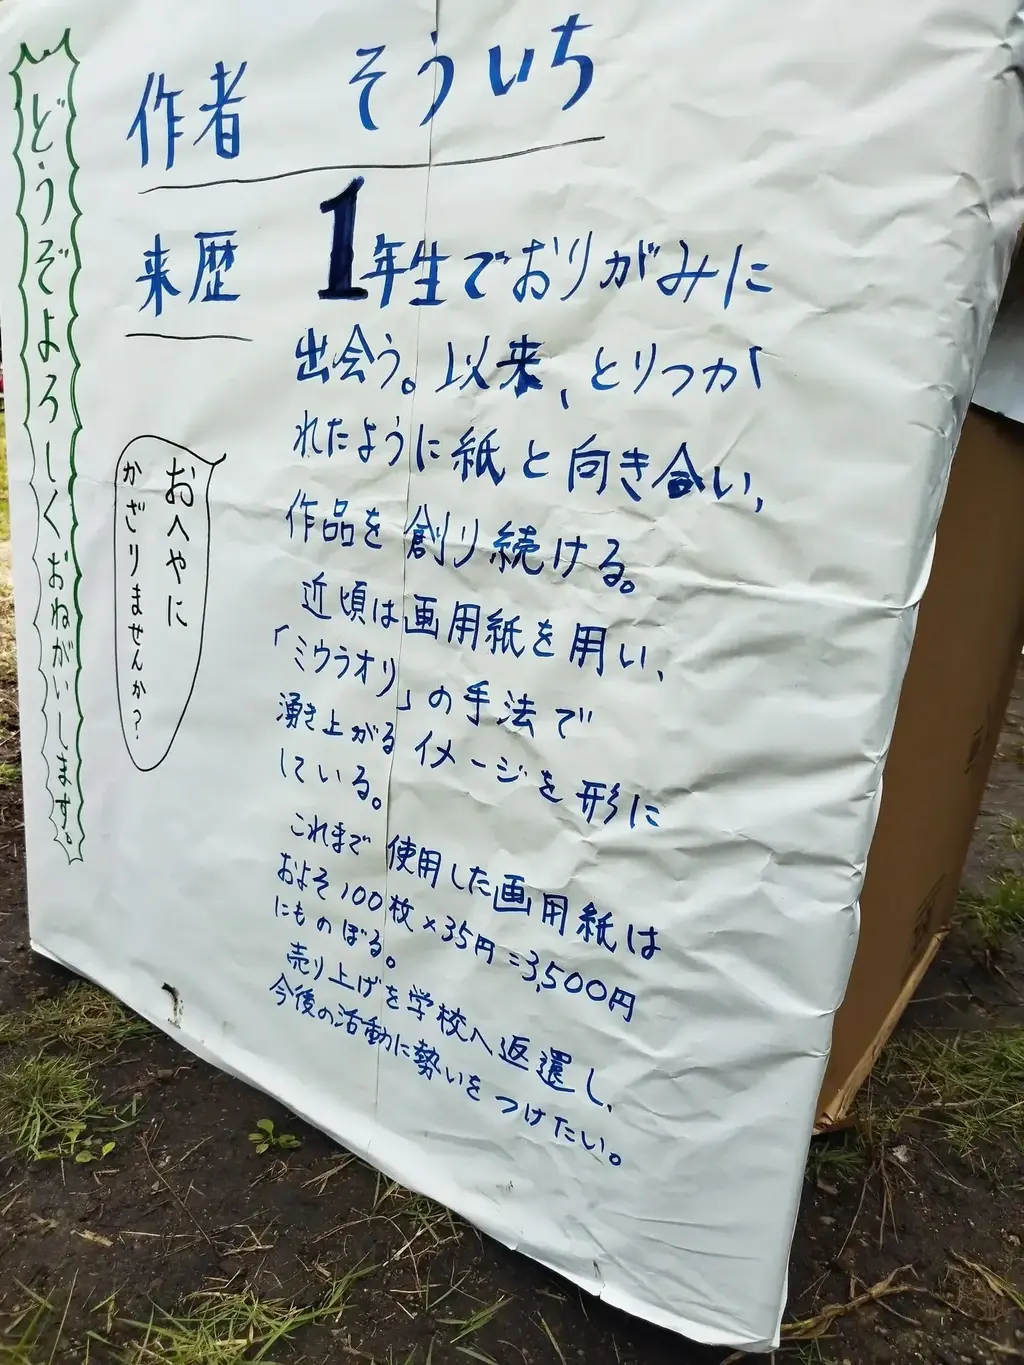 作者 そういち
来歴 1年生でおりがみに
出会う。以来、とりつか
れたように紙と向き合い、
作品を創り続ける。
近頃は画用紙を用い、
「ミウラオリ」の手法で
湧き上がるイメージを形に
している。
これまで使用した画用紙は
およそ100枚×35円=3,500円
にものぼる。
売り上げを学校へ返還し、
今後の活動に勢いをつけたい。
おへやに
かざりませんか?
どうぞよろしくおねがいします。